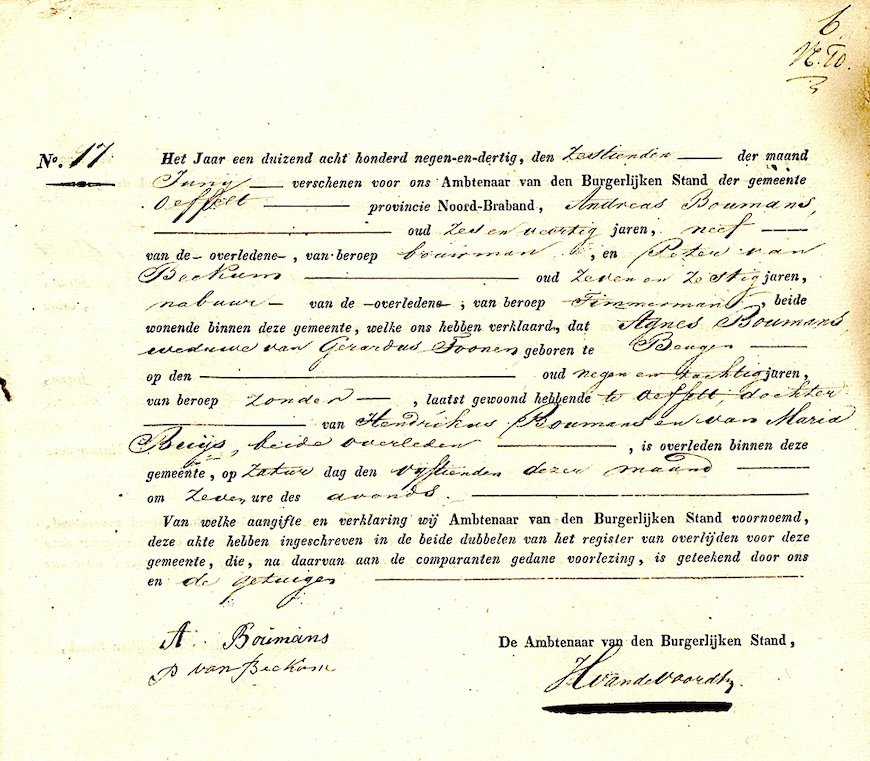 6
No. 17
Het Jaar een duizend acht honderd negen-en-dertig, den zestienden der maand
Juny verschenen voor ons Ambtenaar van den Burgerlijken Stand der gemeente
Oeffelt provincie Noord-Braband, Andreas Boumans,
oud zes en veertig jaren, neef
van de overledene, van beroep bouwman, en Peter van
Beckum oud zeven en zestig jaren,
nabuur van de overledene, van beroep Timmerman, beide
wonende binnen deze gemeente, welke ons hebben verklaard, dat Agnes Boumans,
weduwe van Gerardus Toonen geboren te Beugen
op den oud negen en zachtig jaren,
van beroep zonder, laatst gewoond hebbende te Oeffelt, dochter
van Hendrikus Boumans en van Maria
Buijs, beide overleden, is overleden binnen deze
gemeente, op Zatur dag den vyftienden dezer maand
om zeven ure des avonds.
Van welke aangifte en verklaring wij Ambtenaar van den Burgerlijken Stand voornoemd,
deze akte hebben ingeschreven in de beide dubbelen van het register van overlijden voor deze
gemeente, die, na daarvan aan de comparanten gedane voorlezing, is geteekend door ons
en de getuigen
A. Boumans
P van Beckum
De Ambtenaar van den Burgerlijken Stand,
HvandeVoordt